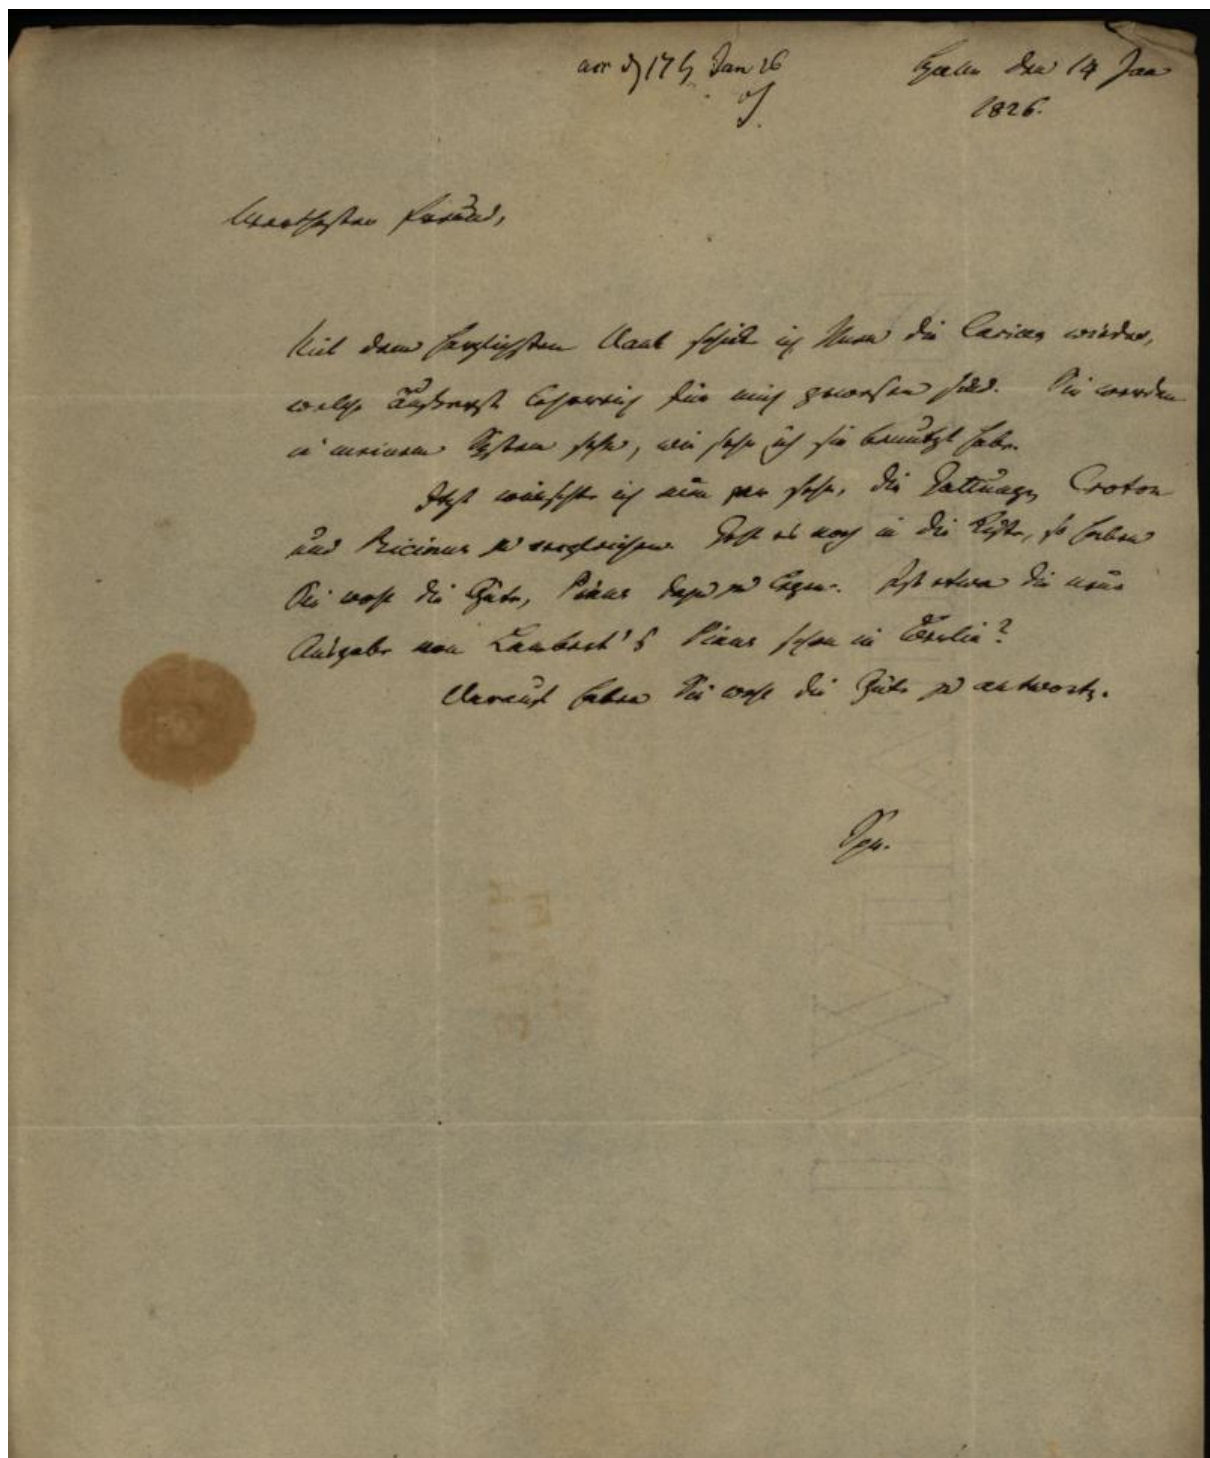 acc d 17 Jan 26
Halle den 14 Jan
1826.
Werthester Freund,
Mit dem herzlichsten Dank schick ich Ihnen die Carices wieder,
welche äußerst lehrreich für mich gewesen sind. Sie werden
in meinem System sehn, wie sehr ich sie benutzt habe.
Jetzt wünschte ich nun gar sehr, die Gattungen Croton
und Ricinus zu vergleichen. Geht es noch in die Kiste, so haben
Sie wohl die Güte, Pinus dazu zu legen. Ist etwa die neue
Ausgabe von Lambert's Pinus schon in Berlin?
Darauf haben Sie wohl die Güte zu antworten.
Spr.